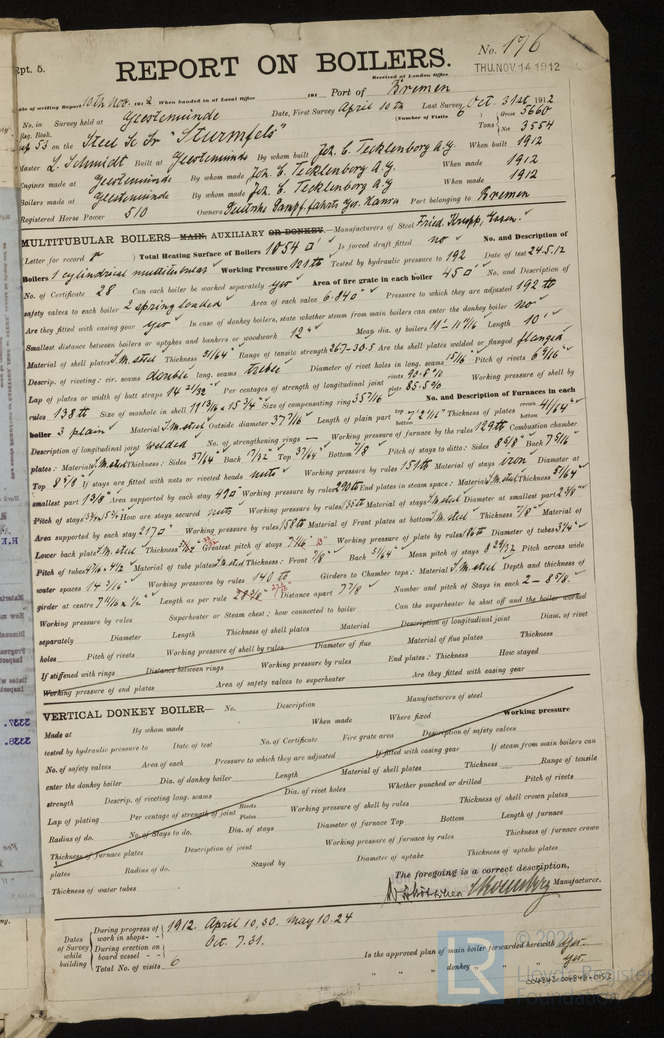 Rpt. 5.
No. 176
REPORT ON BOILERS.
Received at London Office
THU. NOV. 14 1912
Date of writing Report 10th Nov. 1912 When handed in at Local Office 191 Port of Bremen
No. in Survey held at Geestemünde Date, First Survey April 10th Last Survey Oct. 31st 1912
Reg. Book. (Number of Visits 6
53 on the Steel Sc Sr "Sturmfels" Tons Gross 5660 Net 3554
Master L. Schmidt Built at Geestemünde By whom built Joh. C. Tecklenborg A.G. When built 1912
Engines made at Geestemünde By whom made Joh. C. Tecklenborg A.G. When made 1912
Boilers made at Geestemünde By whom made Joh. C. Tecklenborg A.G. When made 1912
Registered Horse Power 510 Owners Deutsche Dampf. fahrts Ges. Hansa Port belonging to Bremen
MULTITUBULAR BOILERS MAIN, AUXILIARY OR DONKEY. Manufacturers of Steel Fried. Krupp, Essen.
(Letter for record r ) Total Heating Surface of Boilers 1054 □' Is forced draft fitted no No. and Description of
Boilers 1 cylindrical multitubular Working Pressure Tested by hydraulic pressure to 192 Date of test 24.5.12
No. of Certificate 28 Can each boiler be worked separately yes Area of fire grate in each boiler 45 □' No. and Description of
safety valves to each boiler 2 spring loaded Area of each valve 6.840" Pressure to which they are adjusted
Are they fitted with easing gear yes In case of donkey boilers, state whether steam from main boilers can enter the donkey boiler no
Smallest distance between boilers or uptakes and bunkers or woodwork 12" Mean dia. of boilers 11'-11 9/16 Length 10'
Material of shell plates S.M. steel Thickness 51/64" Range of tensile strength 26.7-30.5 Are the shell plates welded or flanged flanged
Descrip. of riveting: cir. seams double long. seams treble Diameter of rivet holes in long. seams 15/16" Pitch of rivets
Lap of plates or width of butt straps 14 21/32" Per centages of strength of longitudinal joint rivets plate 85.5% Working pressure of shell by
rules 138 lb Size of manhole in shell Size of compensating ring No. and Description of Furnaces in each
boiler 3 plain Material S.M. steel Outside diameter 37 7/16 Length of plain part top bottom Thickness of plates crown bottom 41/64"
Description of longitudinal joint welded No. of strengthening rings — Working pressure of furnace by the rules 129 lb Combustion chamber
plates: Material S.M. steel Thickness: Sides 37/64" Back Top 37/64" Bottom 7/8 Pitch of stays to ditto: Sides Back
Top If stays are fitted with nuts or riveted heads nuts Working pressure by rules 151 lb Material of stays iron Diameter at
smallest part 1 3/8" Area supported by each stay Working pressure by rules End plates in steam space: Material S.M. steel Thickness 51/64
Pitch of stays How are stays secured nuts Working pressure by rules 135 lb Material of stays S.M. steel Diameter at smallest part
Area supported by each stay Working pressure by rules 158 lb Material of Front plates at bottom S.M. steel Thickness 7/8" Material of
Lower back plate S.M. steel Thickness Greatest pitch of stays Working pressure of plate by rules Diameter of tubes 3 1/4"
Pitch of tubes Material of tube plates S.M. steel Thickness: Front 7/8" Back 51/64" Mean pitch of stays 8 29/32 Pitch across wide
water spaces 14 3/16" Working pressures by rules 140 lb Girders to Chamber tops: Material S.M. steel Depth and thickness of
girder at centre Length as per rule Distance apart 7 7/8 Number and pitch of Stays in each 2 - 8 5/8"
Working pressure by rules Superheater or Steam chest; how connected to boiler Can the superheater be shut off and the boiler worked
separately Diameter Length Thickness of shell plates Material Description of longitudinal joint Diam. of rivet
holes Pitch of rivets Working pressure of shell by rules Diameter of flue Material of flue plates Thickness
If stiffened with rings Distance between rings Working pressure by rules End plates: Thickness How stayed
Working pressure of end plates Area of safety valves to superheater Are they fitted with easing gear
VERTICAL DONKEY BOILER— No. Description Manufacturers of steel
Made at By whom made When made Where fixed Working pressure
tested by hydraulic pressure to Date of test No. of Certificate Fire grate area Description of safety valves
No. of safety valves Area of each Pressure to which they are adjusted If fitted with easing gear If steam from main boilers can
enter the donkey boiler Dia. of donkey boiler Length Material of shell plates Thickness Range of tensile
strength Descrip. of riveting long. seams Dia. of rivet holes Whether punched or drilled Pitch of rivets
Lap of plating Per centage of strength of joint Rivets Plates Working pressure of shell by rules Thickness of shell crown plates
Radius of do. No. of Stays to do. Dia. of stays Diameter of furnace Top Bottom Length of furnace
Thickness of furnace plates Description of joint Working pressure of furnace by rules Thickness of furnace crown
plates Radius of do. Stayed by Diameter of uptake Thickness of uptake plates
Thickness of water tubes
The foregoing is a correct description,
Manufacturer.
Dates of Survey while building During progress of work in shops - - 1912. April 10, 30. May 10. 24
During erection on board vessel - - - Oct. 7. 31.
Total No. of visits 6
Is the approved plan of main boiler forwarded herewith yes
" " " donkey " " " yes
© 2021
Lloyd's Register
Foundation
004842-004848-0153